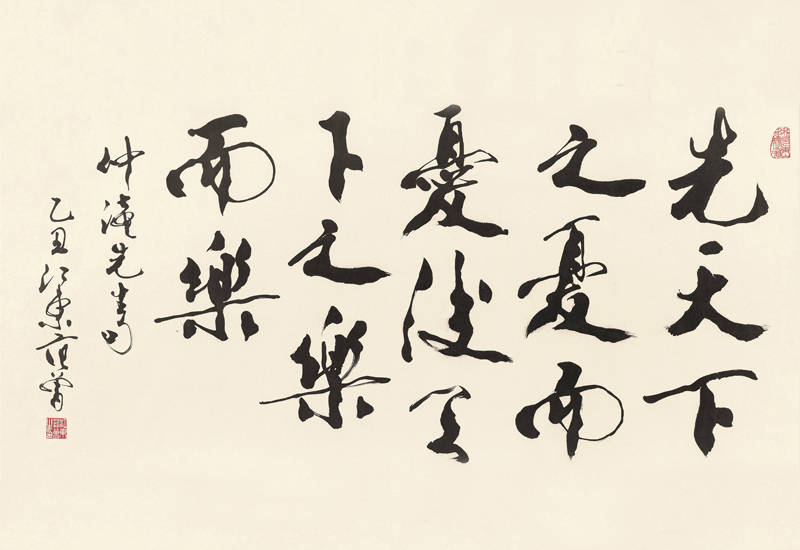 先天下
之憂而
憂後天
下之樂
而樂
仲淹先生句
乙丑江東范曾